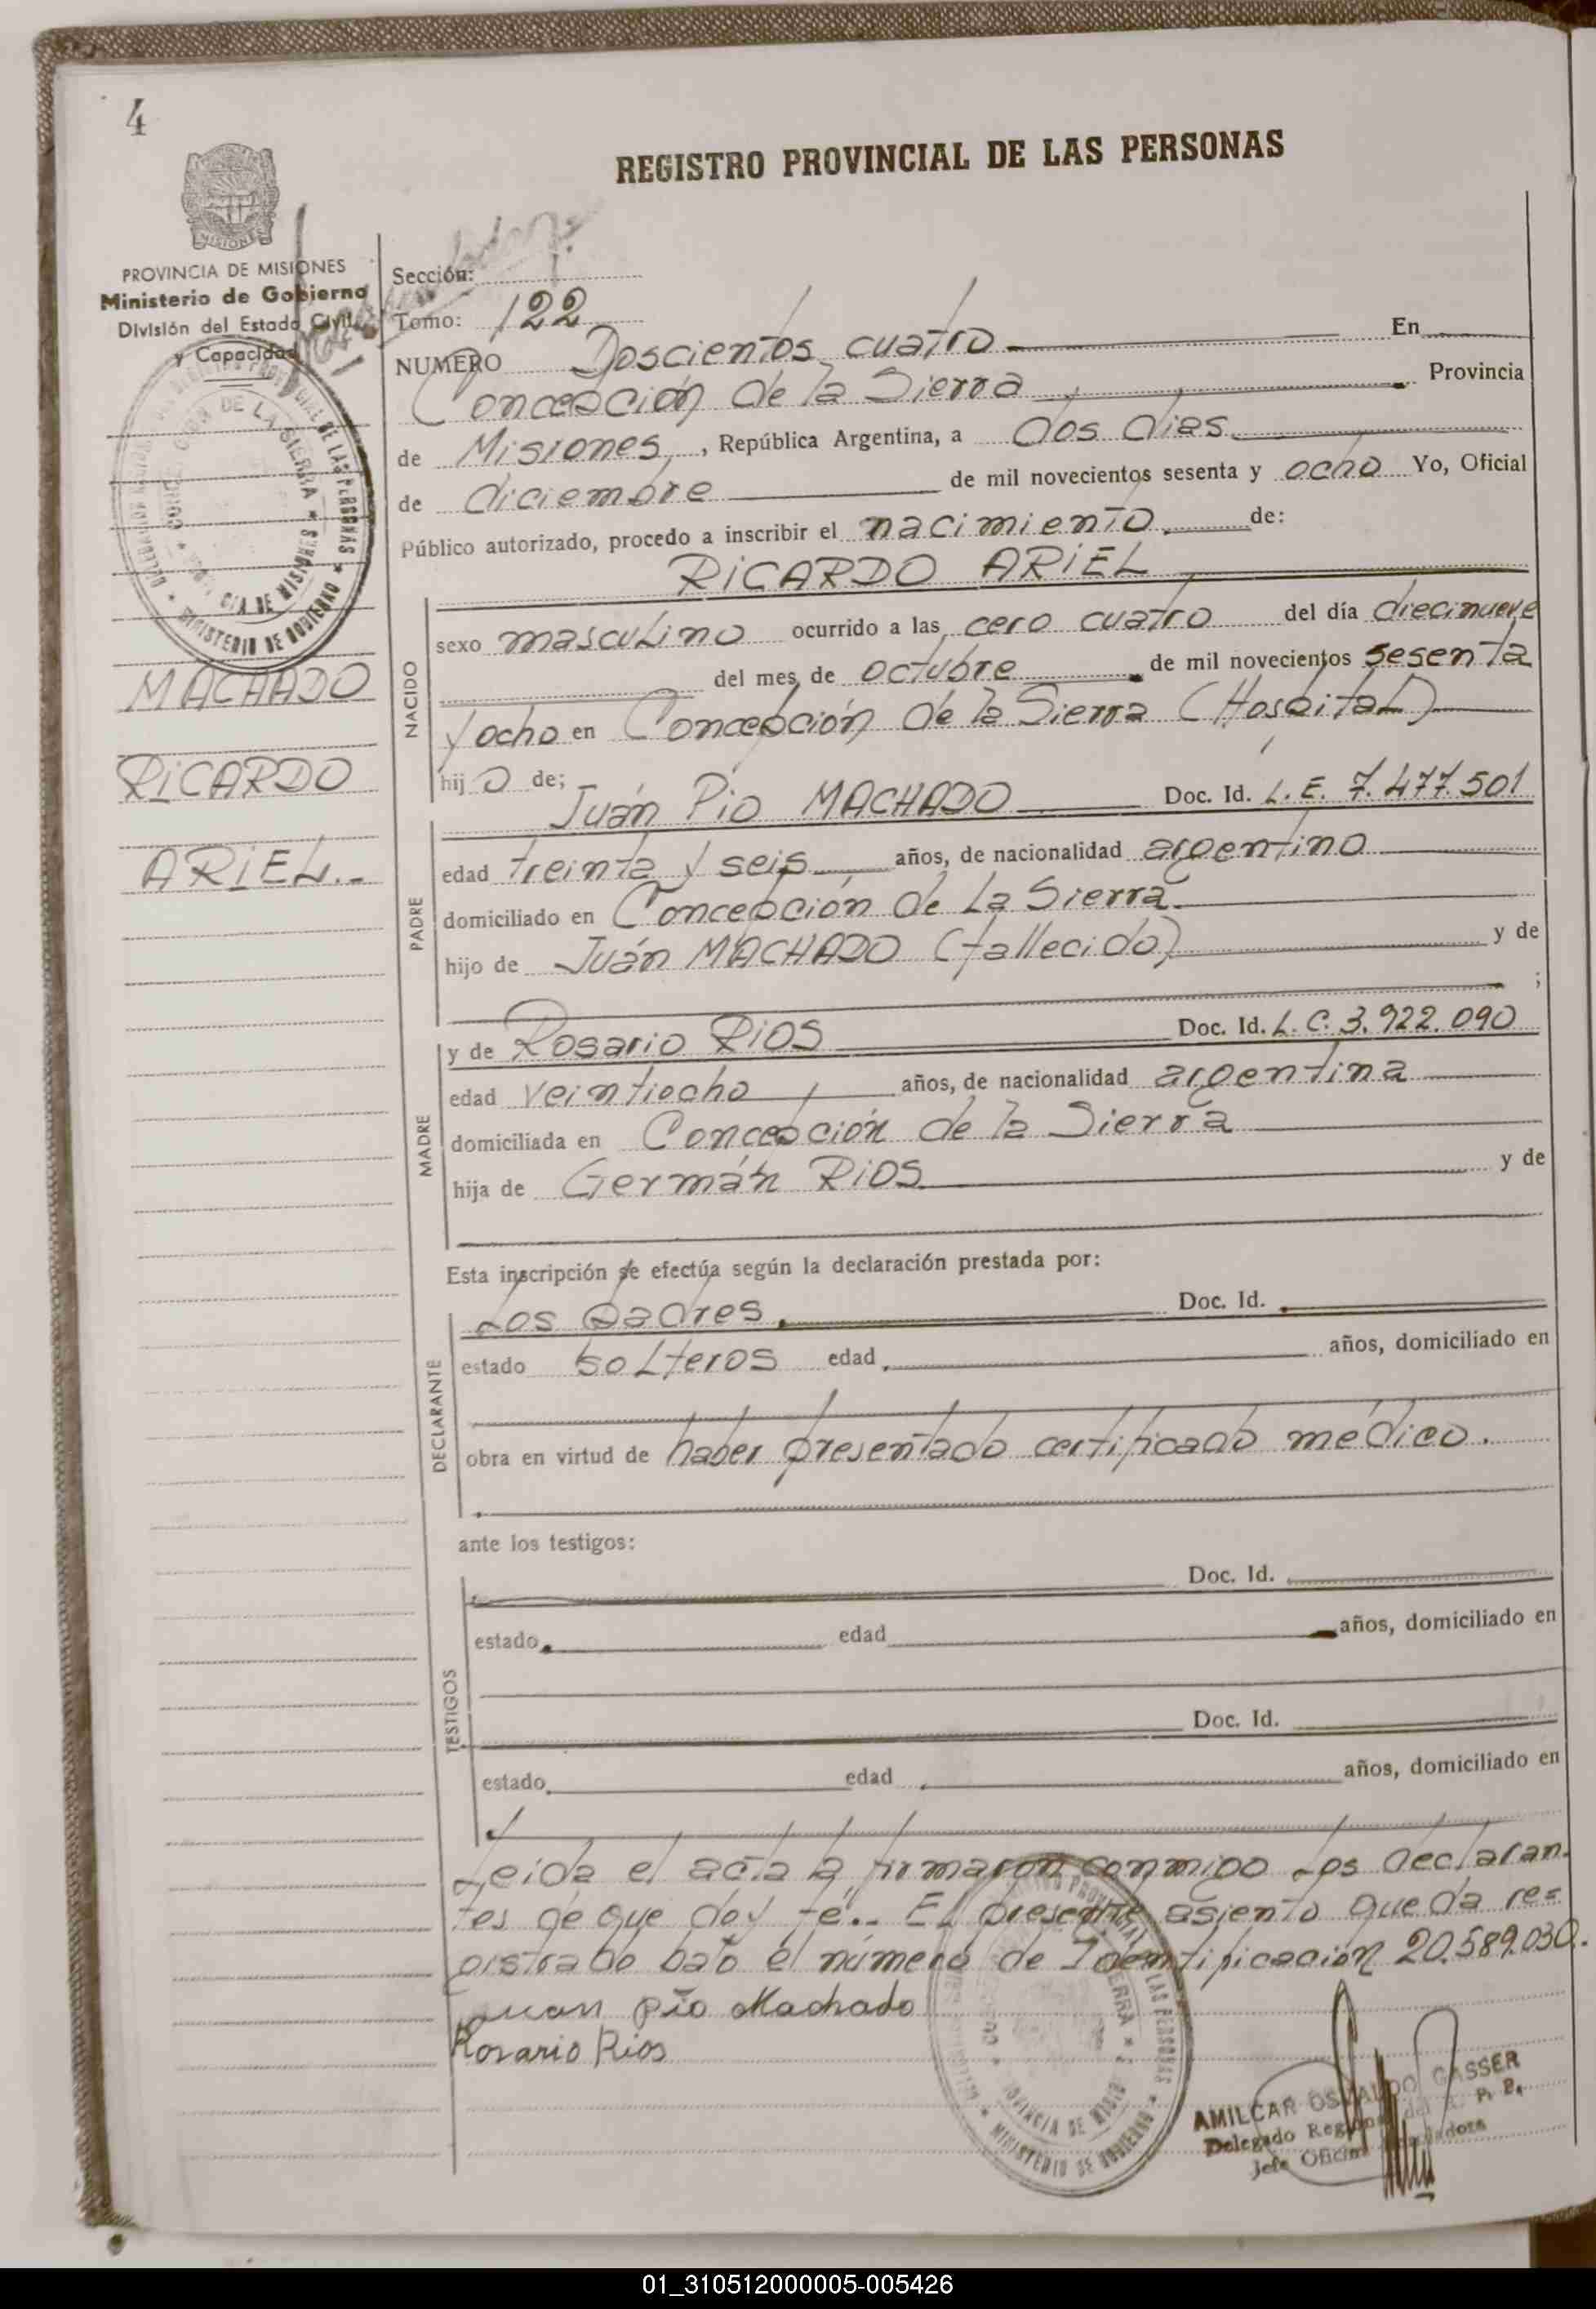 4
REGISTRO PROVINCIAL DE LAS PERSONAS
MISIONES
PROVINCIA DE MISIONES
Ministerio de Gobierno
División del Estado Civil
y Capacidad
Sección:
Tomo: 122
NUMERO Doscientos cuatro En
Concepción de la Sierra Provincia
de Misiones, República Argentina, a dos dias
de diciembre de mil novecientos sesenta y ocho Yo, Oficial
Público autorizado, procedo a inscribir el nacimiento de:
RICARDO ARIEL
MACHADO
RICARDO
ARIEL.-
NACIDO
sexo masculino ocurrido a las cero cuatro del día diecinueve
del mes de octubre de mil novecientos sesenta
y ocho en Concepción de la Sierra (Hospital)
hijo de;
Juán Pio MACHADO Doc. Id. L. E. 7.477.501
PADRE
edad treinta y seis años, de nacionalidad argentino
domiciliado en Concepción de La Sierra
hijo de Juán MACHADO (fallecido) y de
;
y de Rosario RIOS Doc. Id. L. C. 3.922.090
MADRE
edad veintiocho años, de nacionalidad argentina
domiciliada en Concepción de la Sierra
hija de Germán RIOS y de
Esta inscripción se efectúa según la declaración prestada por:
DECLARANTE
Los padres. Doc. Id.
estado solteros edad años, domiciliado en
obra en virtud de haber presentado certificado médico.
ante los testigos:
TESTIGOS
Doc. Id.
estado edad años, domiciliado en
Doc. Id.
estado edad años, domiciliado en
Leida el acta la firmaron conmigo Los declaran-
tes de que doy fé.. El presente asiento queda re=
gistrado bajo el número de Identificación 20.589.030.
Juan Pío Machado
Rosario Rios
REGISTRO PROVINCIAL DE LAS PERSONAS * MINISTERIO DE GOBIERNO *
AMILCAR OSVALDO GASSER
Delegado Regional del R. P. P.
Jefe Oficina
01_310512000005-005426